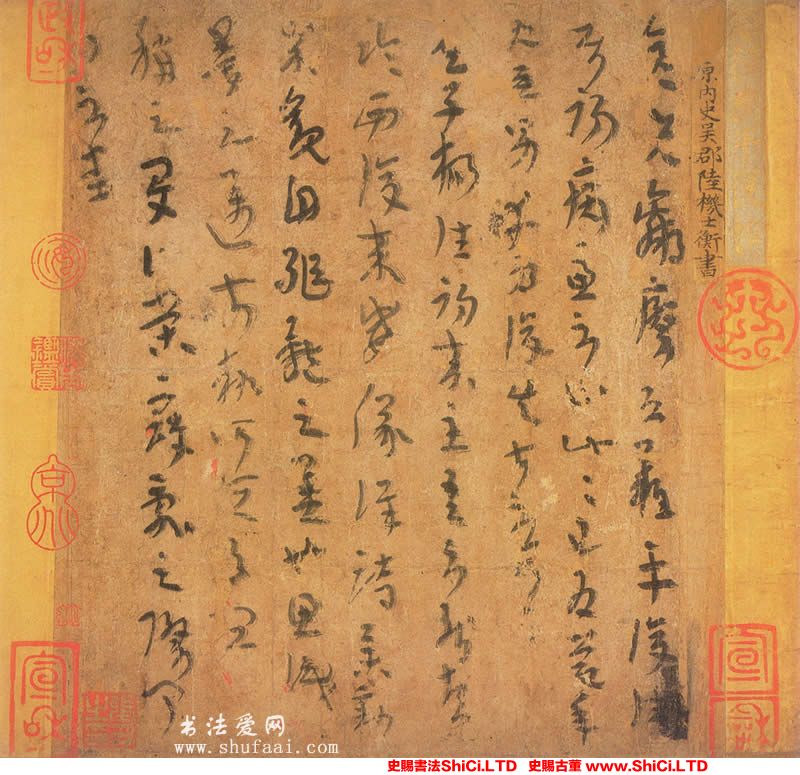 原内史吳郡陸機士衡書
彦先羸瘵恐難平復往屬
初病慮不止此此已為慶承
使唯男幸為復失前憂耳
吳子楊往初來主吾不能盡
臨西復來威儀詳跱舉動
成觀自軀體之美也思識
量之邁前執所恒有宜
稱之夏伯榮寇亂之際聞
問不悉
宣和
宣和
政和
书法爱网
www.shufaai.com
史賜書法ShiCi.LTD 史賜古董 www.ShiCi.LTD